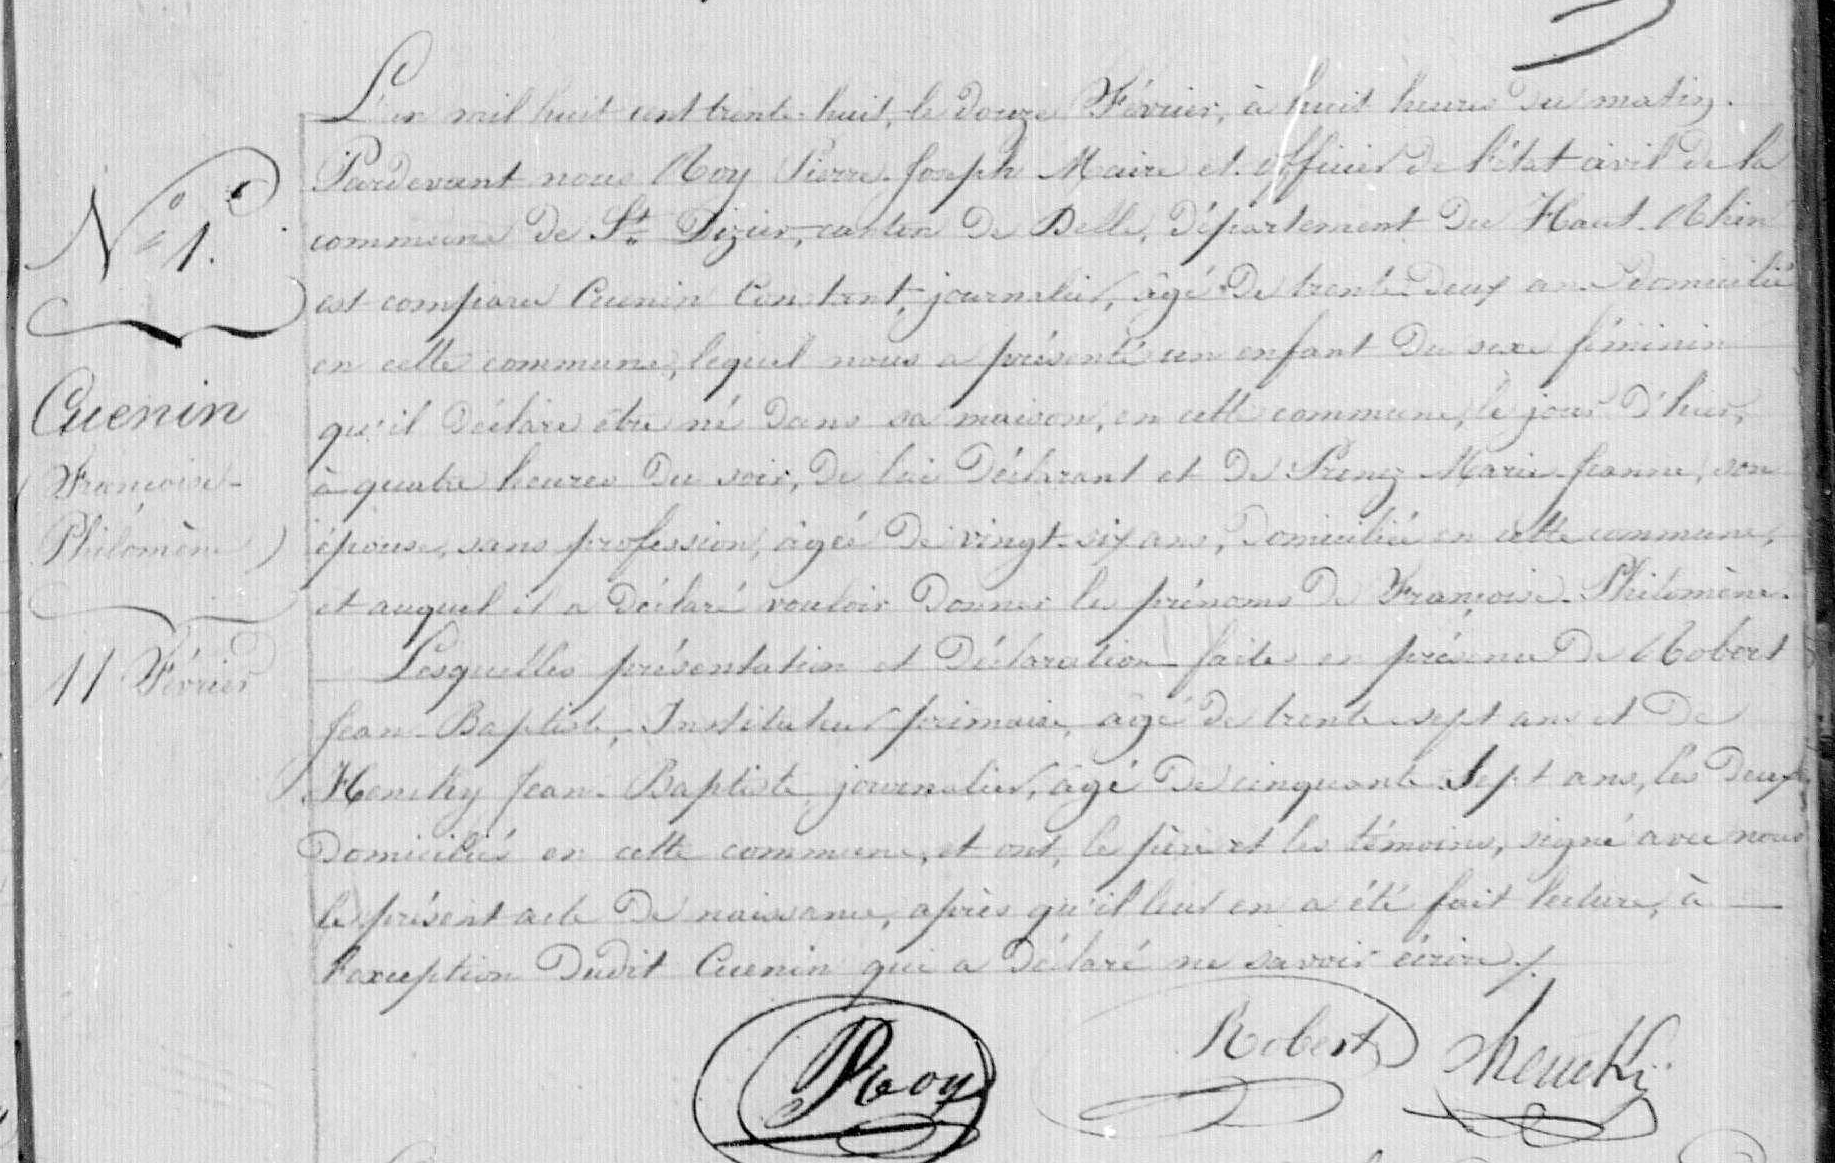 N.° 1.
Cuenin
(Françoise-
Philomène)
11 Février
L'an mil huit cent trente-huit, le douze Février, à huit heures du matin.
Pardevant nous Roy Pierre-Joseph Maire et officier de l'état civil de la
commune de St. Dizier, canton de Delle, département du Haut-Rhin
est comparu Cuenin Constant, journalier, âgé de trente-deux ans domicilié
en cette commune, lequel nous a présenté un enfant du sexe féminin
qu'il déclare être né dans sa maison, en cette commune, le jour d'hier,
à quatre heures du soir, de lui déclarant et de Prenez Marie-Jeanne, son
épouse, sans profession, âgée de vingt-six ans, domiciliée en cette commune,
et auquel il a déclaré vouloir donner les prénoms de Françoise-Philomène.
Lesquelles présentation et déclaration faites en présence de Robert
Jean-Baptiste, Instituteur primaire, âgé de trente-sept ans et de
Hencky Jean-Baptiste journalier, âgé de cinquante-sept ans, les deux
domiciliés en cette commune, et ont, le père et les témoins, signé avec nous
le présent acte de naissance, après qu'il leur en a été fait lecture, à
l'exception dudit Cuenin qui a déclaré ne savoir écrire./.
Roy Robert Hencki